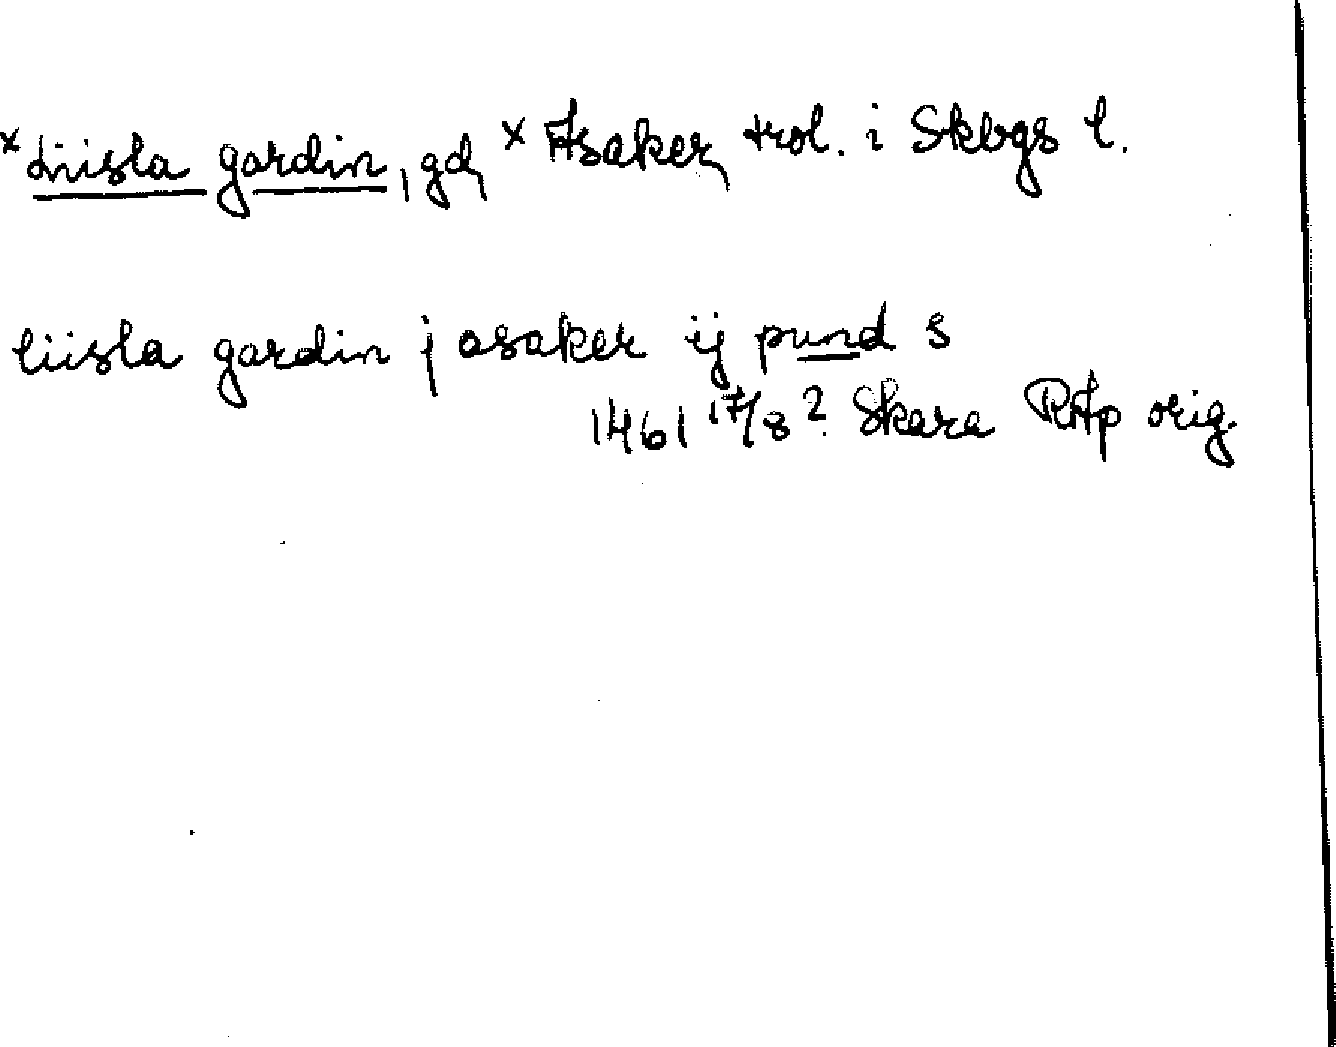 × Liisla gardin, gd, × Asaker, trol. i Skbgs l.
liisla gardin j asaker ij pund s
1461 17/8? Skara RAp orig.